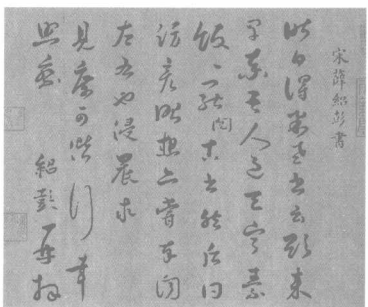 宋薛紹彭書
昨日得米老書云欲來
早率吾人過天寧素
飯一古書然后同
訪彥昭想亦嘗奉聞
左右也侵晨求
見可偕行幸
照察 紹彭再拜